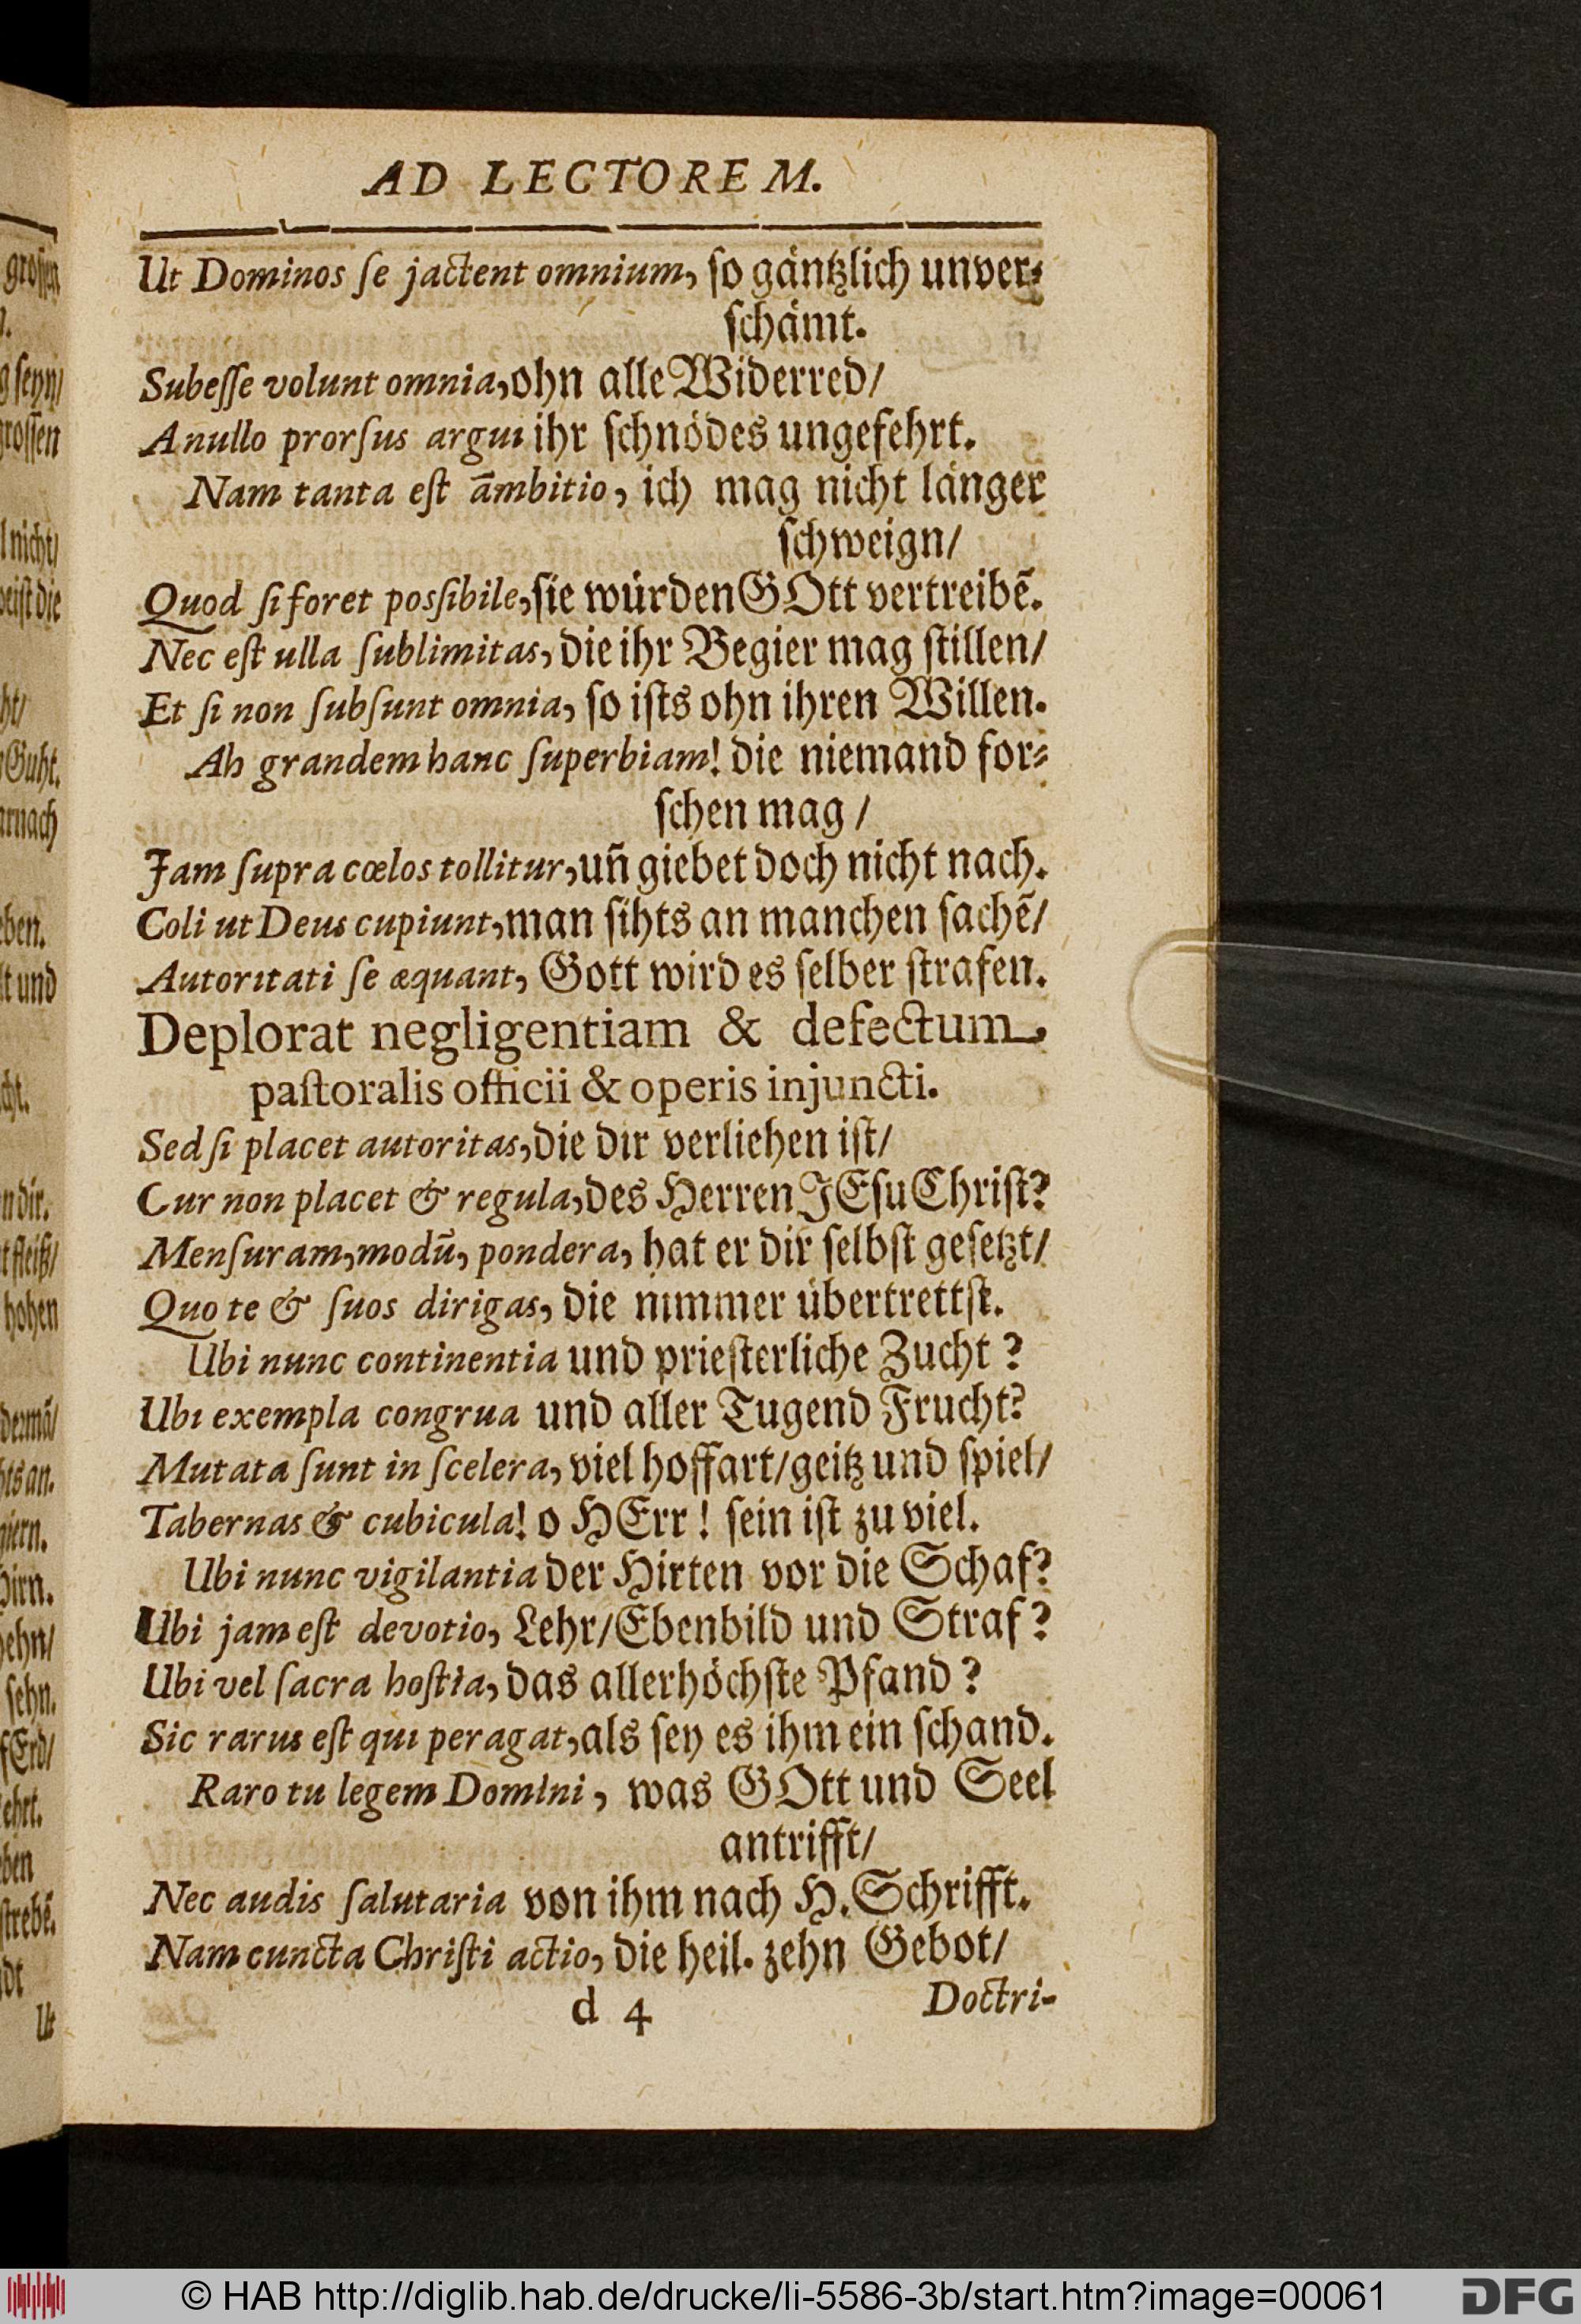 AD LECTOREM.
Ut Dominos ſe jactent omnium, ſo gäntzlich unver⸗
ſchämt.
Subeſſe volunt omnia, ohn alle Widerred/
A nullo prorſus argui ihr ſchnödes ungefehrt.
Nam tanta eſt ãmbitio, ich mag nicht länger
ſchweign/
Quod ſi foret poſſibile, ſie würden GOtt vertreibẽ.
Nec eſt ulla ſublimitas, die ihr Begier mag ſtillen/
Et ſi non ſubſunt omnia, ſo iſts ohn ihren Willen.
Ah grandem hanc ſuperbiam! die niemand for⸗
ſchen mag /
Jam ſupra cœlos tollitur, uñ giebet doch nicht nach.
Coli ut Deus cupiunt, man ſihts an manchen ſachẽ/
Autoritati ſe æquant, Gott wird es ſelber ſtrafen.
Deplorat negligentiam & defectum
paſtoralis officii & operis injuncti.
Sed ſi placet autoritas, die dir verliehen iſt/
Cur non placet & regula, des Herren JEſu Chriſt?
Menſuram, modū, pondera, hat er dir ſelbſt geſetzt/
Quo te & ſuos dirigas, die nimmer übertrettſt.
Ubi nunc continentia und prieſterliche Zucht ?
Ubi exempla congrua und aller Tugend Frucht?
Mutata ſunt in ſcelera, viel hoffart/geitz und ſpiel/
Tabernas & cubicula! o HErr ! ſein iſt zu viel.
Ubi nunc vigilantia der Hirten vor die Schaf?
Ubi jam eſt devotio, Lehr/Ebenbild und Straf ?
Ubi vel ſacra hoſtia, das allerhöchſte Pfand ?
Sic rarus eſt qui peragat, als ſey es ihm ein ſchand.
Raro tu legem Domini, was GOtt und Seel
antrifft/
Nec audis ſalutaria von ihm nach H. Schrifft.
Nam cuncta Chriſti actio, die heil. zehn Gebot/
d 4 Doctri-
© HAB http://diglib.hab.de/drucke/li-5586-3b/start.htm?image=00061
DFG